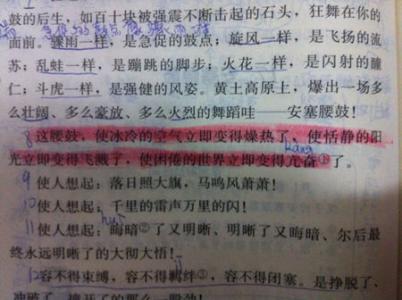 鼓的后生,如百十块被强震不断击起的石头,狂舞在你的
面前。骤雨一样,是急促的鼓点;旋风一样,是飞扬的流
苏;乱蛙一样,是蹦跳的脚步;火花一样,是闪射的瞳
仁;斗虎一样,是强健的风姿。黄土高原上,爆出一场多
么壮阔、多么豪放、多么火烈的舞蹈哇——安塞腰鼓!
8 这腰鼓,使冰冷的空气立即变得燥热了,使恬静的阳
kàng
光立即变得飞溅了,使困倦的世界立即变得亢奋①了。
9 使人想起:落日照大旗,马鸣风萧萧!
10 使人想起:千里的雷声万里的闪!
huì
11 使人想起:晦暗②了又明晰、明晰了又晦暗、尔后最
终永远明晰了的大彻大悟!
12 容不得束缚,容不得羁绊③,容不得闭塞。是挣脱了、
冲破了、撞开了的那么一股劲!